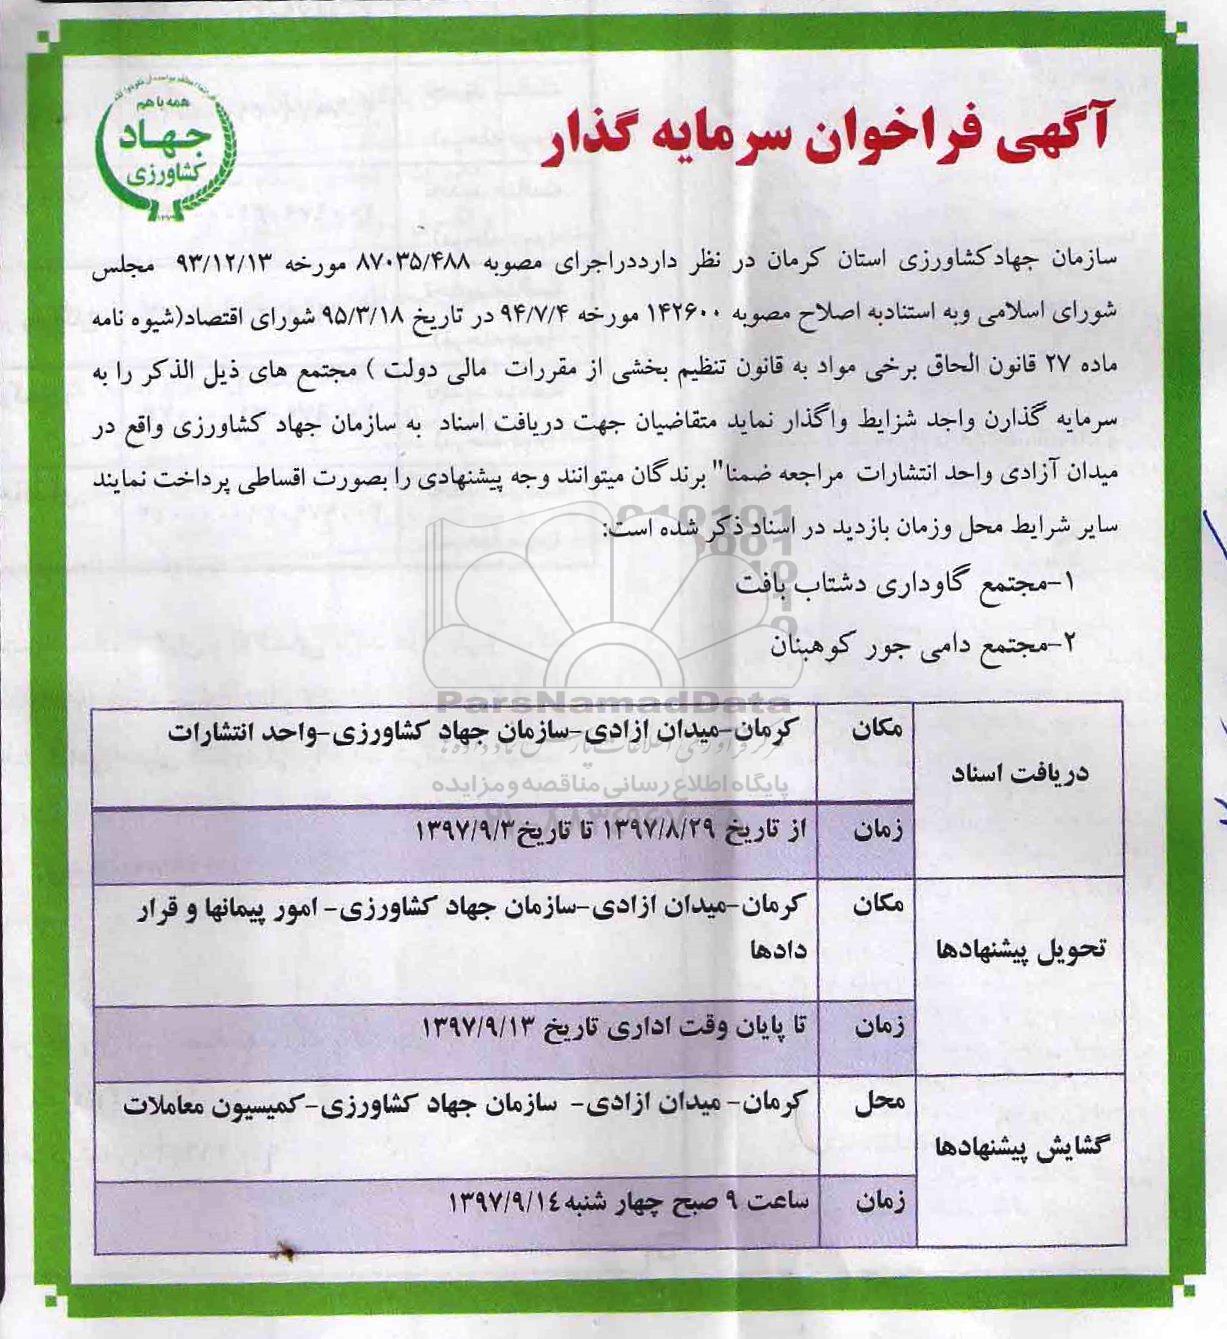 آگهی فراخوان سرمایه گذار
همه با هم
جهاد
کشاورزی
سازمان جهادکشاورزی استان کرمان در نظر دارددراجرای مصوبه ۸۷۰۳۵/۴۸۸ مورخه ۹۳/۱۲/۱۳ مجلس
شورای اسلامی وبه استنادبه اصلاح مصوبه ۱۴۲۶۰۰ مورخه ۹۴/۷/۴ در تاریخ ۹۵/۳/۱۸ شورای اقتصاد(شیوه نامه
ماده ۲۷ قانون الحاق برخی مواد به قانون تنظیم بخشی از مقررات مالی دولت ) مجتمع های ذیل الذکر را به
سرمایه گذارن واجد شزایط واگذار نماید متقاضیان جهت دریافت اسناد به سازمان جهاد کشاورزی واقع در
میدان آزادی واحد انتشارات مراجعه ضمنا" برندگان میتوانند وجه پیشنهادی را بصورت اقساطی پرداخت نمایند
سایر شرایط محل وزمان بازدید در اسناد ذکر شده است:
۱-مجتمع گاوداری دشتاب بافت
۲-مجتمع دامی جور کوهبنان
ParsNamadData
پایگاه اطلاع رسانی مناقصه و مزایده
دریافت اسناد
مکان
کرمان-میدان ازادی-سازمان جهاد کشاورزی-واحد انتشارات
زمان
از تاریخ ۱۳۹۷/۸/۲۹ تا تاریخ۱۳۹۷/۹/۳
تحویل پیشنهادها
مکان
کرمان-میدان ازادی-سازمان جهاد کشاورزی- امور پیمانها و قرار
دادها
زمان
تا پایان وقت اداری تاریخ ۱۳۹۷/۹/۱۳
گشایش پیشنهادها
محل
کرمان- میدان ازادی- سازمان جهاد کشاورزی-کمیسیون معاملات
زمان
ساعت ۹ صبح چهار شنبه۱۳۹۷/۹/۱٤